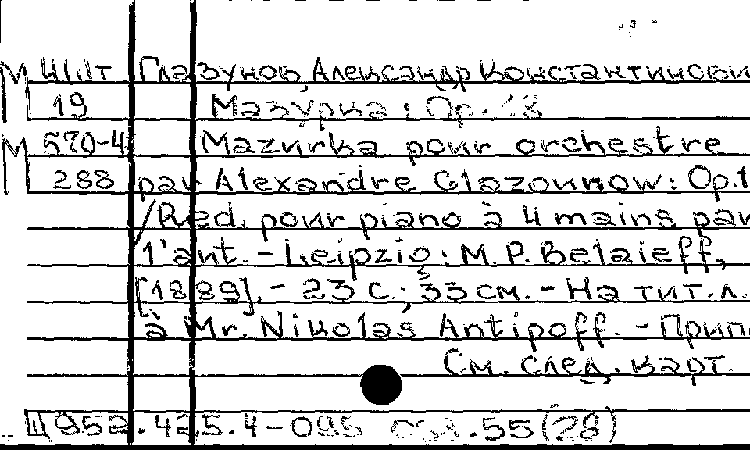 М Ш1Т Глазунов, Александр Константинови
19 Мазурка: Op.18
М 570-4 Mazurka pour orchestre
288 par Alexandre Glazounow: Op.1
/Réd. pour piano à 4 mains par
l'aut. - Leipzig: M.P. Belaieff,
[1889]. - 23 с.; 33 см. - На тит.л.
à Mr. Nikolas Antipoff. - Прип
См. след. карт.
Ц 952.425.4-095 .55(28)